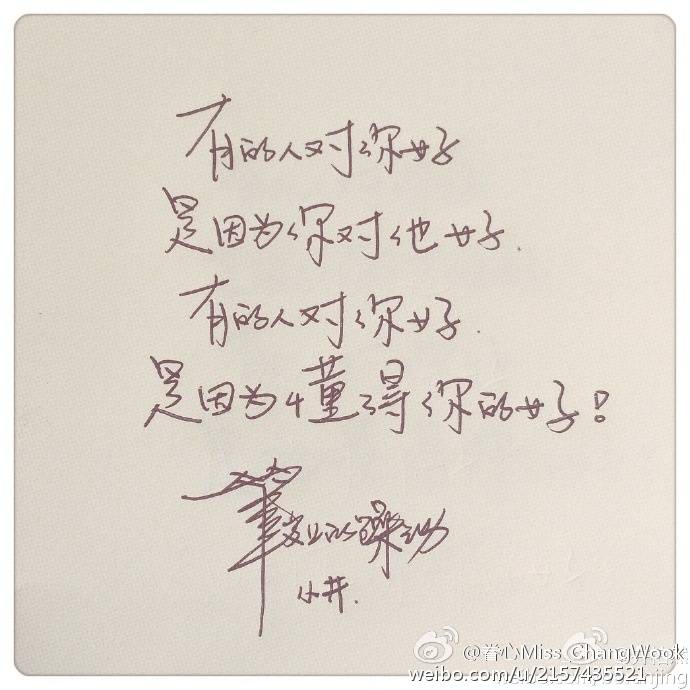 有的人对你好
是因为你对他好.
有的人对你好.
是因为懂得你的好!
筆尖上的躁动
小井.
@眷心Miss ChangWook
weibo.com/u/2157435521
jing